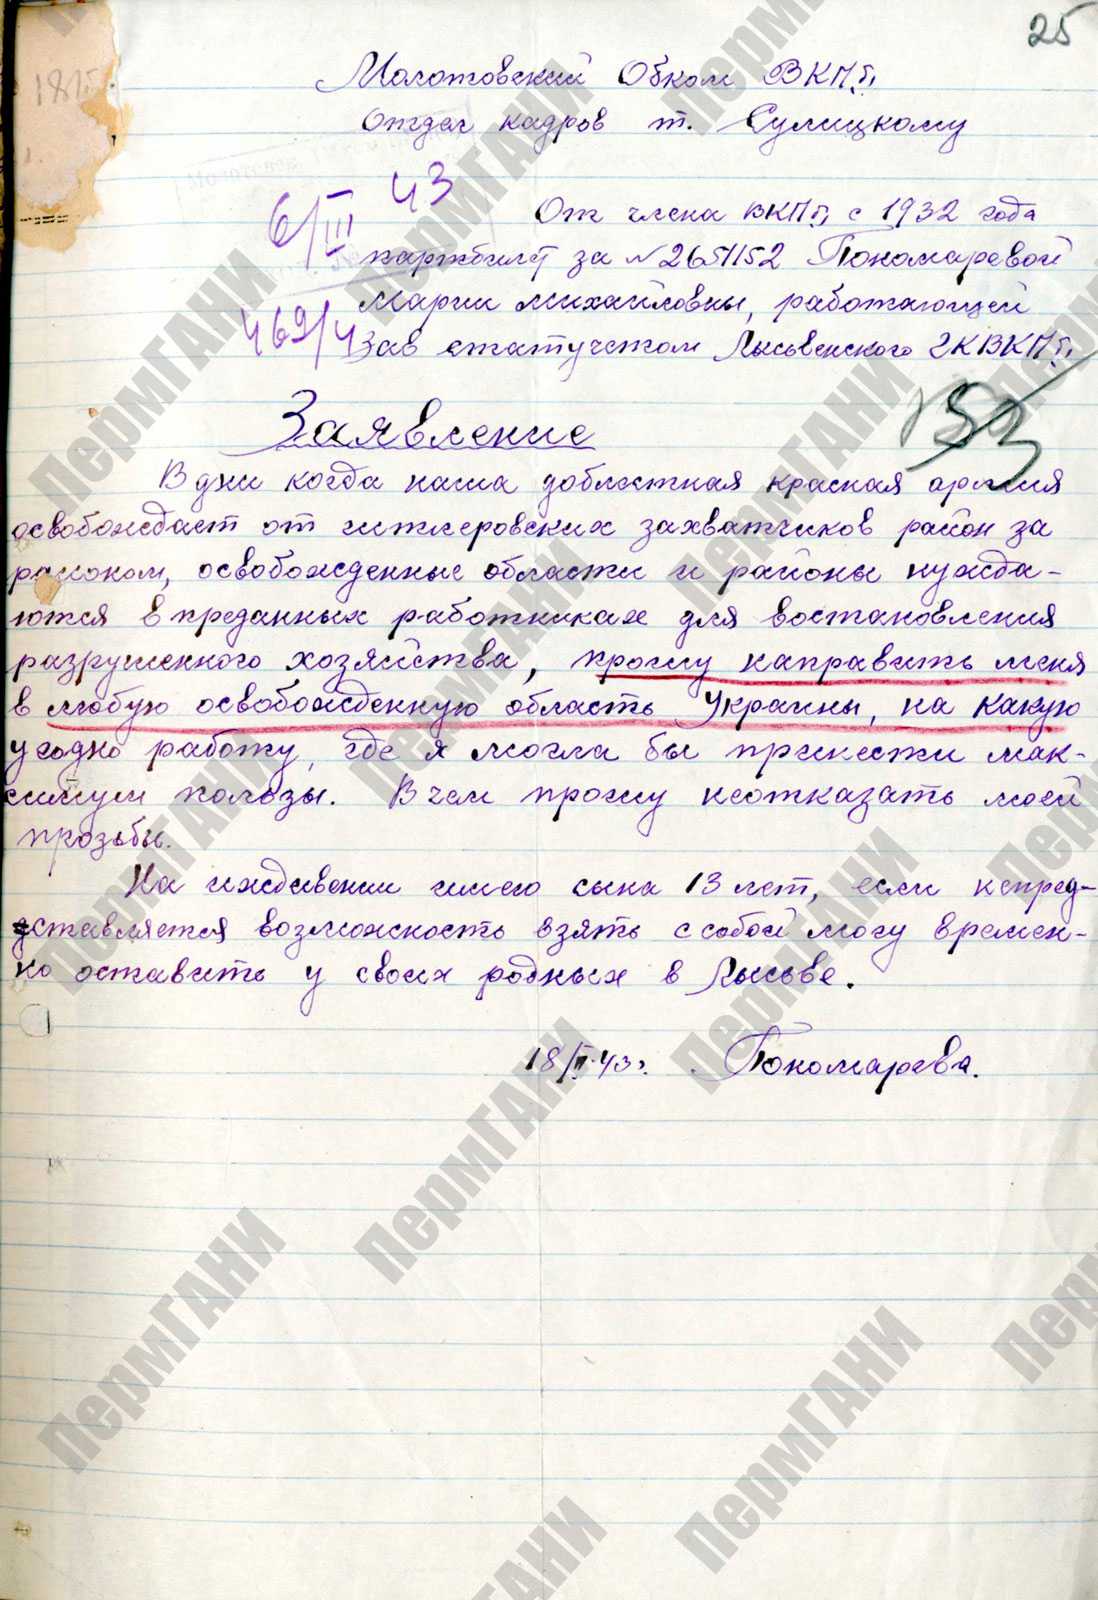 25
Молотовский Обком ВКПб,
Отдел кадров т. Сулицкому
6/III 43
От члена ВКПб, с 1932 года
партбилет за №2651152 Пономаревой
Марии Михайловны, работающей
469/4
Зав статучетом Лысьвенского ГК ВКПб,
Заявление
В дни когда наша доблестная красная армия
освобождает от гитлеровских захватчиков район за
районом, освобожденные области и районы нужда-
ются в преданных работниках для востановления
разрушенного хозяйства, прошу направить меня
в любую освобожденную область Украины, на какую
угодно работу, где я могла бы принести мак-
симум ползы. В чем прошу неотказать моей
прозьбы.
На иждивении имею сына 13 лет, если непред-
ставляется возможность взять с собой могу времен-
но оставить у своих родных в Лысьве.
18/II-43г. Пономарева.
ПермГАНИ